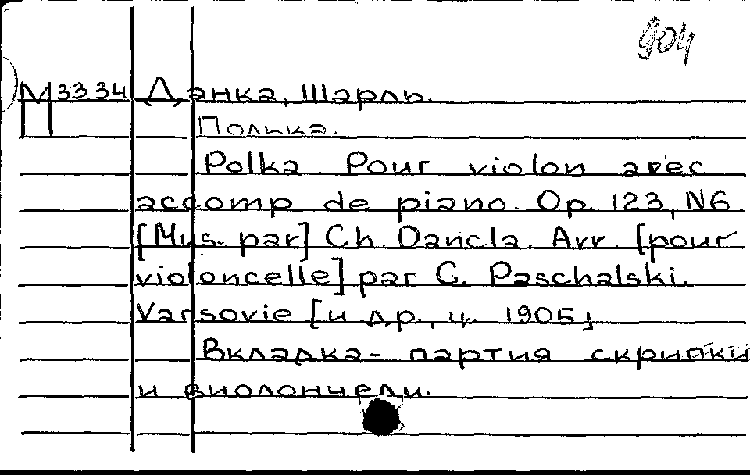 904
М 3334 Данка, Шарль.
П Полька.
Polka Pour violon avec
accomp de piano. Op. 123, N6
[Mus. par] Ch Dancla. Arr. [pour
violoncelle] par C. Paschalski.
Varsovie [и др., ц. 1905]
Вкладка - партия скрипки
и виолончели.